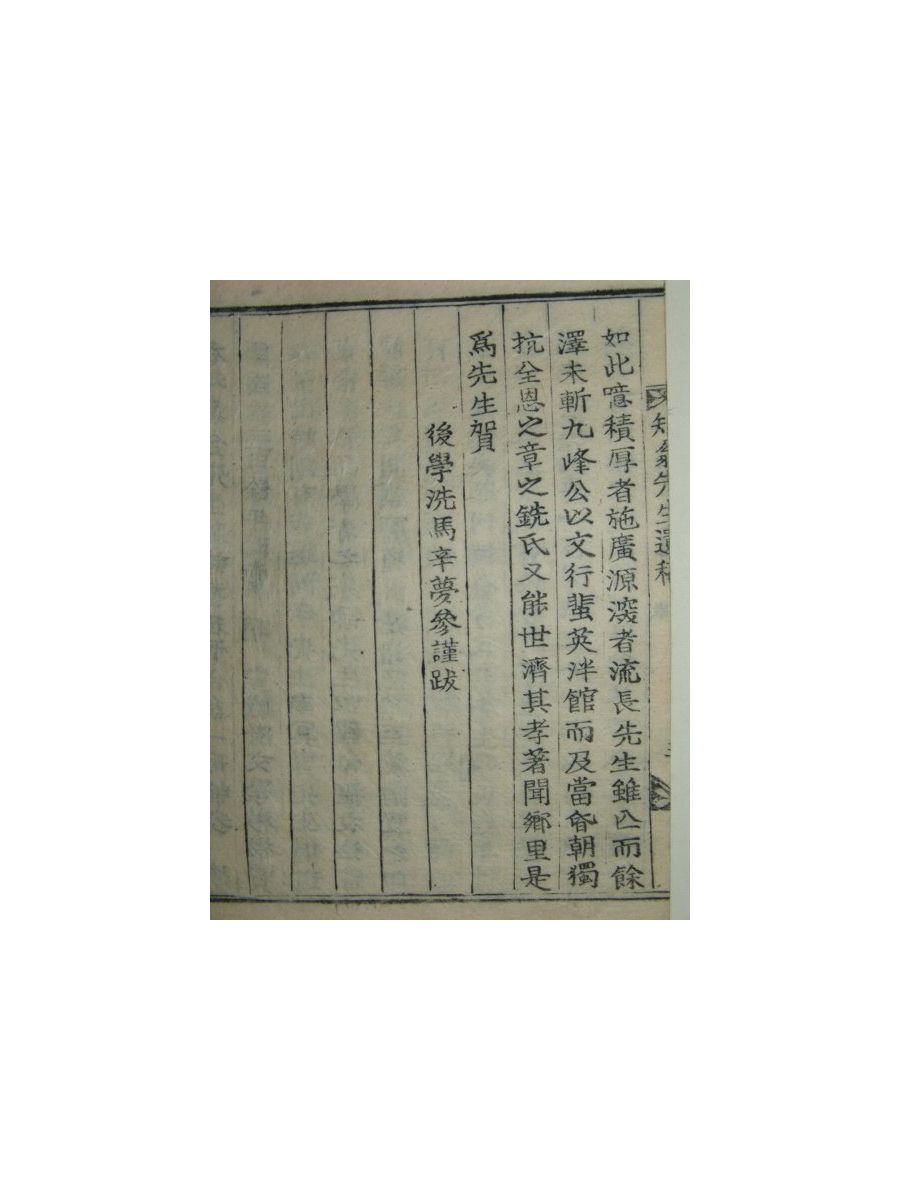 知翁先生遺稿
如此噫積厚者施廣源深者流長先生雖亾而餘
澤未斬九峰公以文行蜚英泮館而及當昏朝獨
抗全恩之章之銑氏又能世濟其孝著聞鄉里是
爲先生賀
後學洗馬辛夢參謹跋